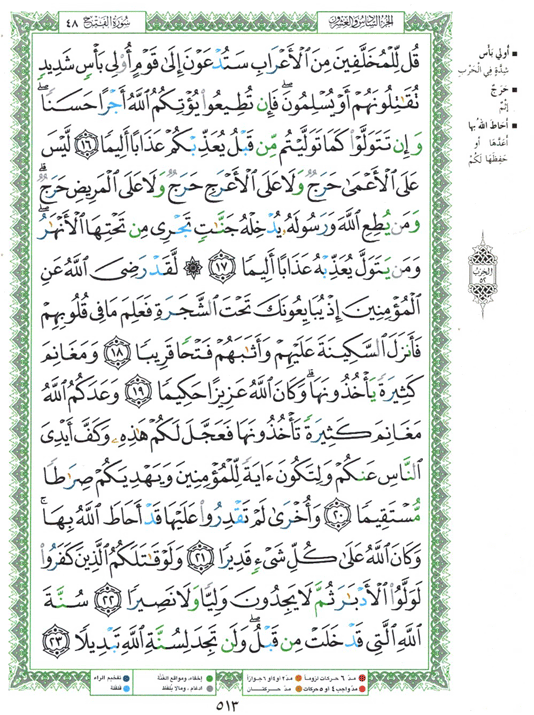 الجزء السادس والعشرون
سُورَةُ الفَتْحِ ٤٨
قُل لِّلْمُخَلَّفِينَ مِنَ ٱلْأَعْرَابِ سَتُدْعَوْنَ إِلَىٰ قَوْمٍ أُو۟لِى بَأْسٍ شَدِيدٍ
تُقَـٰتِلُونَهُمْ أَوْ يُسْلِمُونَ ۖ فَإِن تُطِيعُوا۟ يُؤْتِكُمُ ٱللَّهُ أَجْرًا حَسَنًا ۖ
وَإِن تَتَوَلَّوْا۟ كَمَا تَوَلَّيْتُم مِّن قَبْلُ يُعَذِّبْكُمْ عَذَابًا أَلِيمًا ١٦ لَّيْسَ
عَلَى ٱلْأَعْمَىٰ حَرَجٌ وَلَا عَلَى ٱلْأَعْرَجِ حَرَجٌ وَلَا عَلَى ٱلْمَرِيضِ حَرَجٌ ۗ
وَمَن يُطِعِ ٱللَّهَ وَرَسُولَهُۥ يُدْخِلْهُ جَنَّـٰتٍ تَجْرِى مِن تَحْتِهَا ٱلْأَنْهَـٰرُ ۖ
وَمَن يَتَوَلَّ يُعَذِّبْهُ عَذَابًا أَلِيمًا ١٧ ۞ لَّقَدْ رَضِىَ ٱللَّهُ عَنِ
ٱلْمُؤْمِنِينَ إِذْ يُبَايِعُونَكَ تَحْتَ ٱلشَّجَرَةِ فَعَلِمَ مَا فِى قُلُوبِهِمْ
فَأَنزَلَ ٱلسَّكِينَةَ عَلَيْهِمْ وَأَثَـٰبَهُمْ فَتْحًا قَرِيبًا ١٨ وَمَغَانِمَ
كَثِيرَةً يَأْخُذُونَهَا ۗ وَكَانَ ٱللَّهُ عَزِيزًا حَكِيمًا ١٩ وَعَدَكُمُ ٱللَّهُ
مَغَانِمَ كَثِيرَةً تَأْخُذُونَهَا فَعَجَّلَ لَكُمْ هَـٰذِهِۦ وَكَفَّ أَيْدِىَ
ٱلنَّاسِ عَنكُمْ وَلِتَكُونَ ءَايَةً لِّلْمُؤْمِنِينَ وَيَهْدِيَكُمْ صِرَٰطًا
مُّسْتَقِيمًا ٢٠ وَأُخْرَىٰ لَمْ تَقْدِرُوا۟ عَلَيْهَا قَدْ أَحَاطَ ٱللَّهُ بِهَا ۚ
وَكَانَ ٱللَّهُ عَلَىٰ كُلِّ شَىْءٍ قَدِيرًا ٢١ وَلَوْ قَـٰتَلَكُمُ ٱلَّذِينَ كَفَرُوا۟
لَوَلَّوُا۟ ٱلْأَدْبَـٰرَ ثُمَّ لَا يَجِدُونَ وَلِيًّا وَلَا نَصِيرًا ٢٢ سُنَّةَ
ٱللَّهِ ٱلَّتِى قَدْ خَلَتْ مِن قَبْلُ ۖ وَلَن تَجِدَ لِسُنَّةِ ٱللَّهِ تَبْدِيلًا ٢٣
■ أولي بأس
شِدَّةٍ فِي الْحَرْبِ
■ حَرَجٌ
إِثْمٌ
■ أحاط الله بها
أَعَدَّهَا أو
حَفِظَهَا لَكُمْ
الحزب
مد ٦ حركات لزوماً
مد ٢ أو ٤ أو ٦ جوازاً
إخفاء، ومواقع الغُنَّة
تفخيم الراء
مد واجب ٤ أو ٥ حركات
مد حركتان
إدغام، وما لا يُلفظ
قلقلة
٥١٣